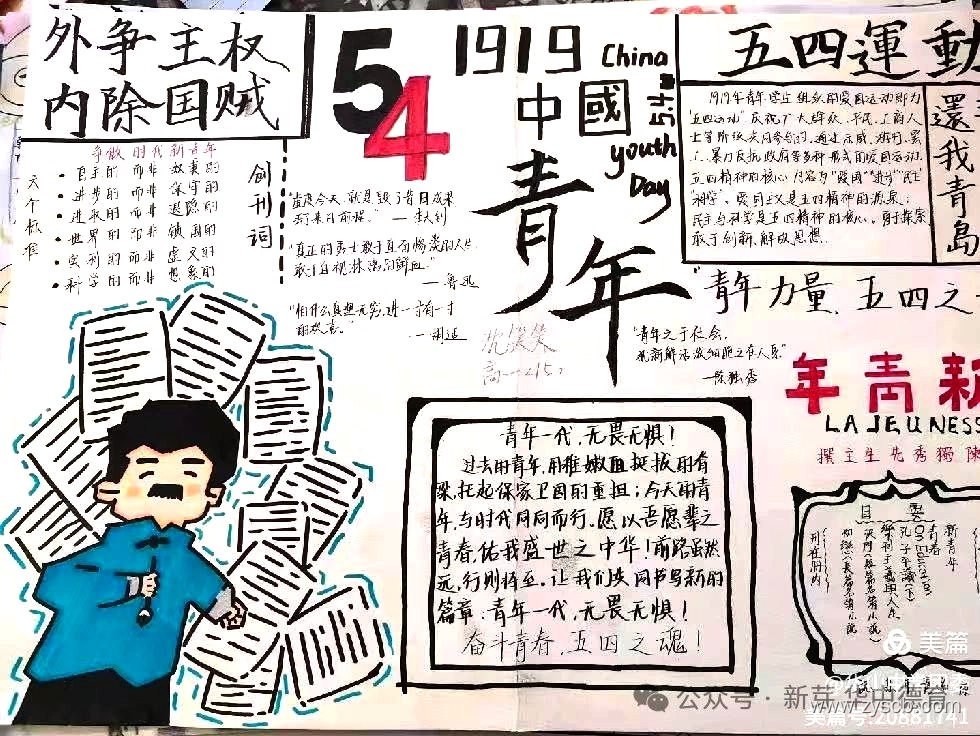 外争主权
内除国贼
54
1919
China
中國
五四
youth
Day
青年
五四運動
還我青岛
争做时代新青年
六个标准
创刊词
• 自主的而非奴隶的
• 进步的而非保守的
• 进取的而非退隐的
• 世界的而非锁国的
• 实利的而非虚文的
• 科学的而非想象的
——李大钊
"真正的勇士敢于直面惨淡的人生
敢于正视淋漓的鲜血"
——鲁迅
"怕什么真理无穷,进一寸有一寸
的欢喜。"
——胡适
1919年青年学生组织的爱国运动即为
五四精神的核心内容为"爱国""进步""民主"
"科学",爱国主义是五四精神的源泉;
民主与科学是五四精神的核心,勇于探索
敢于创新、解放思想
"青年力量、五四之
"青年之于社会,
犹新鲜活泼细胞之在人身"
——陈独秀
年青新
LA JEUNESS
撰主生先秀獨陳
青年一代,无畏无惧!
过去的青年,用稚嫩且挺拔的脊
梁,托起保家卫国的重担;今天的青
年,与时代同向而行。愿以吾愿辈之
青春,佑我盛世之中华!前路虽然
远,行则将至。让我们共同书写新的
篇章:青年一代,无畏无惧!
奋斗青春,五四之魂!
新青年
青春
目
要
美篇
公众号·新芽华中德育
www.zyscb.com
美篇号:20881741